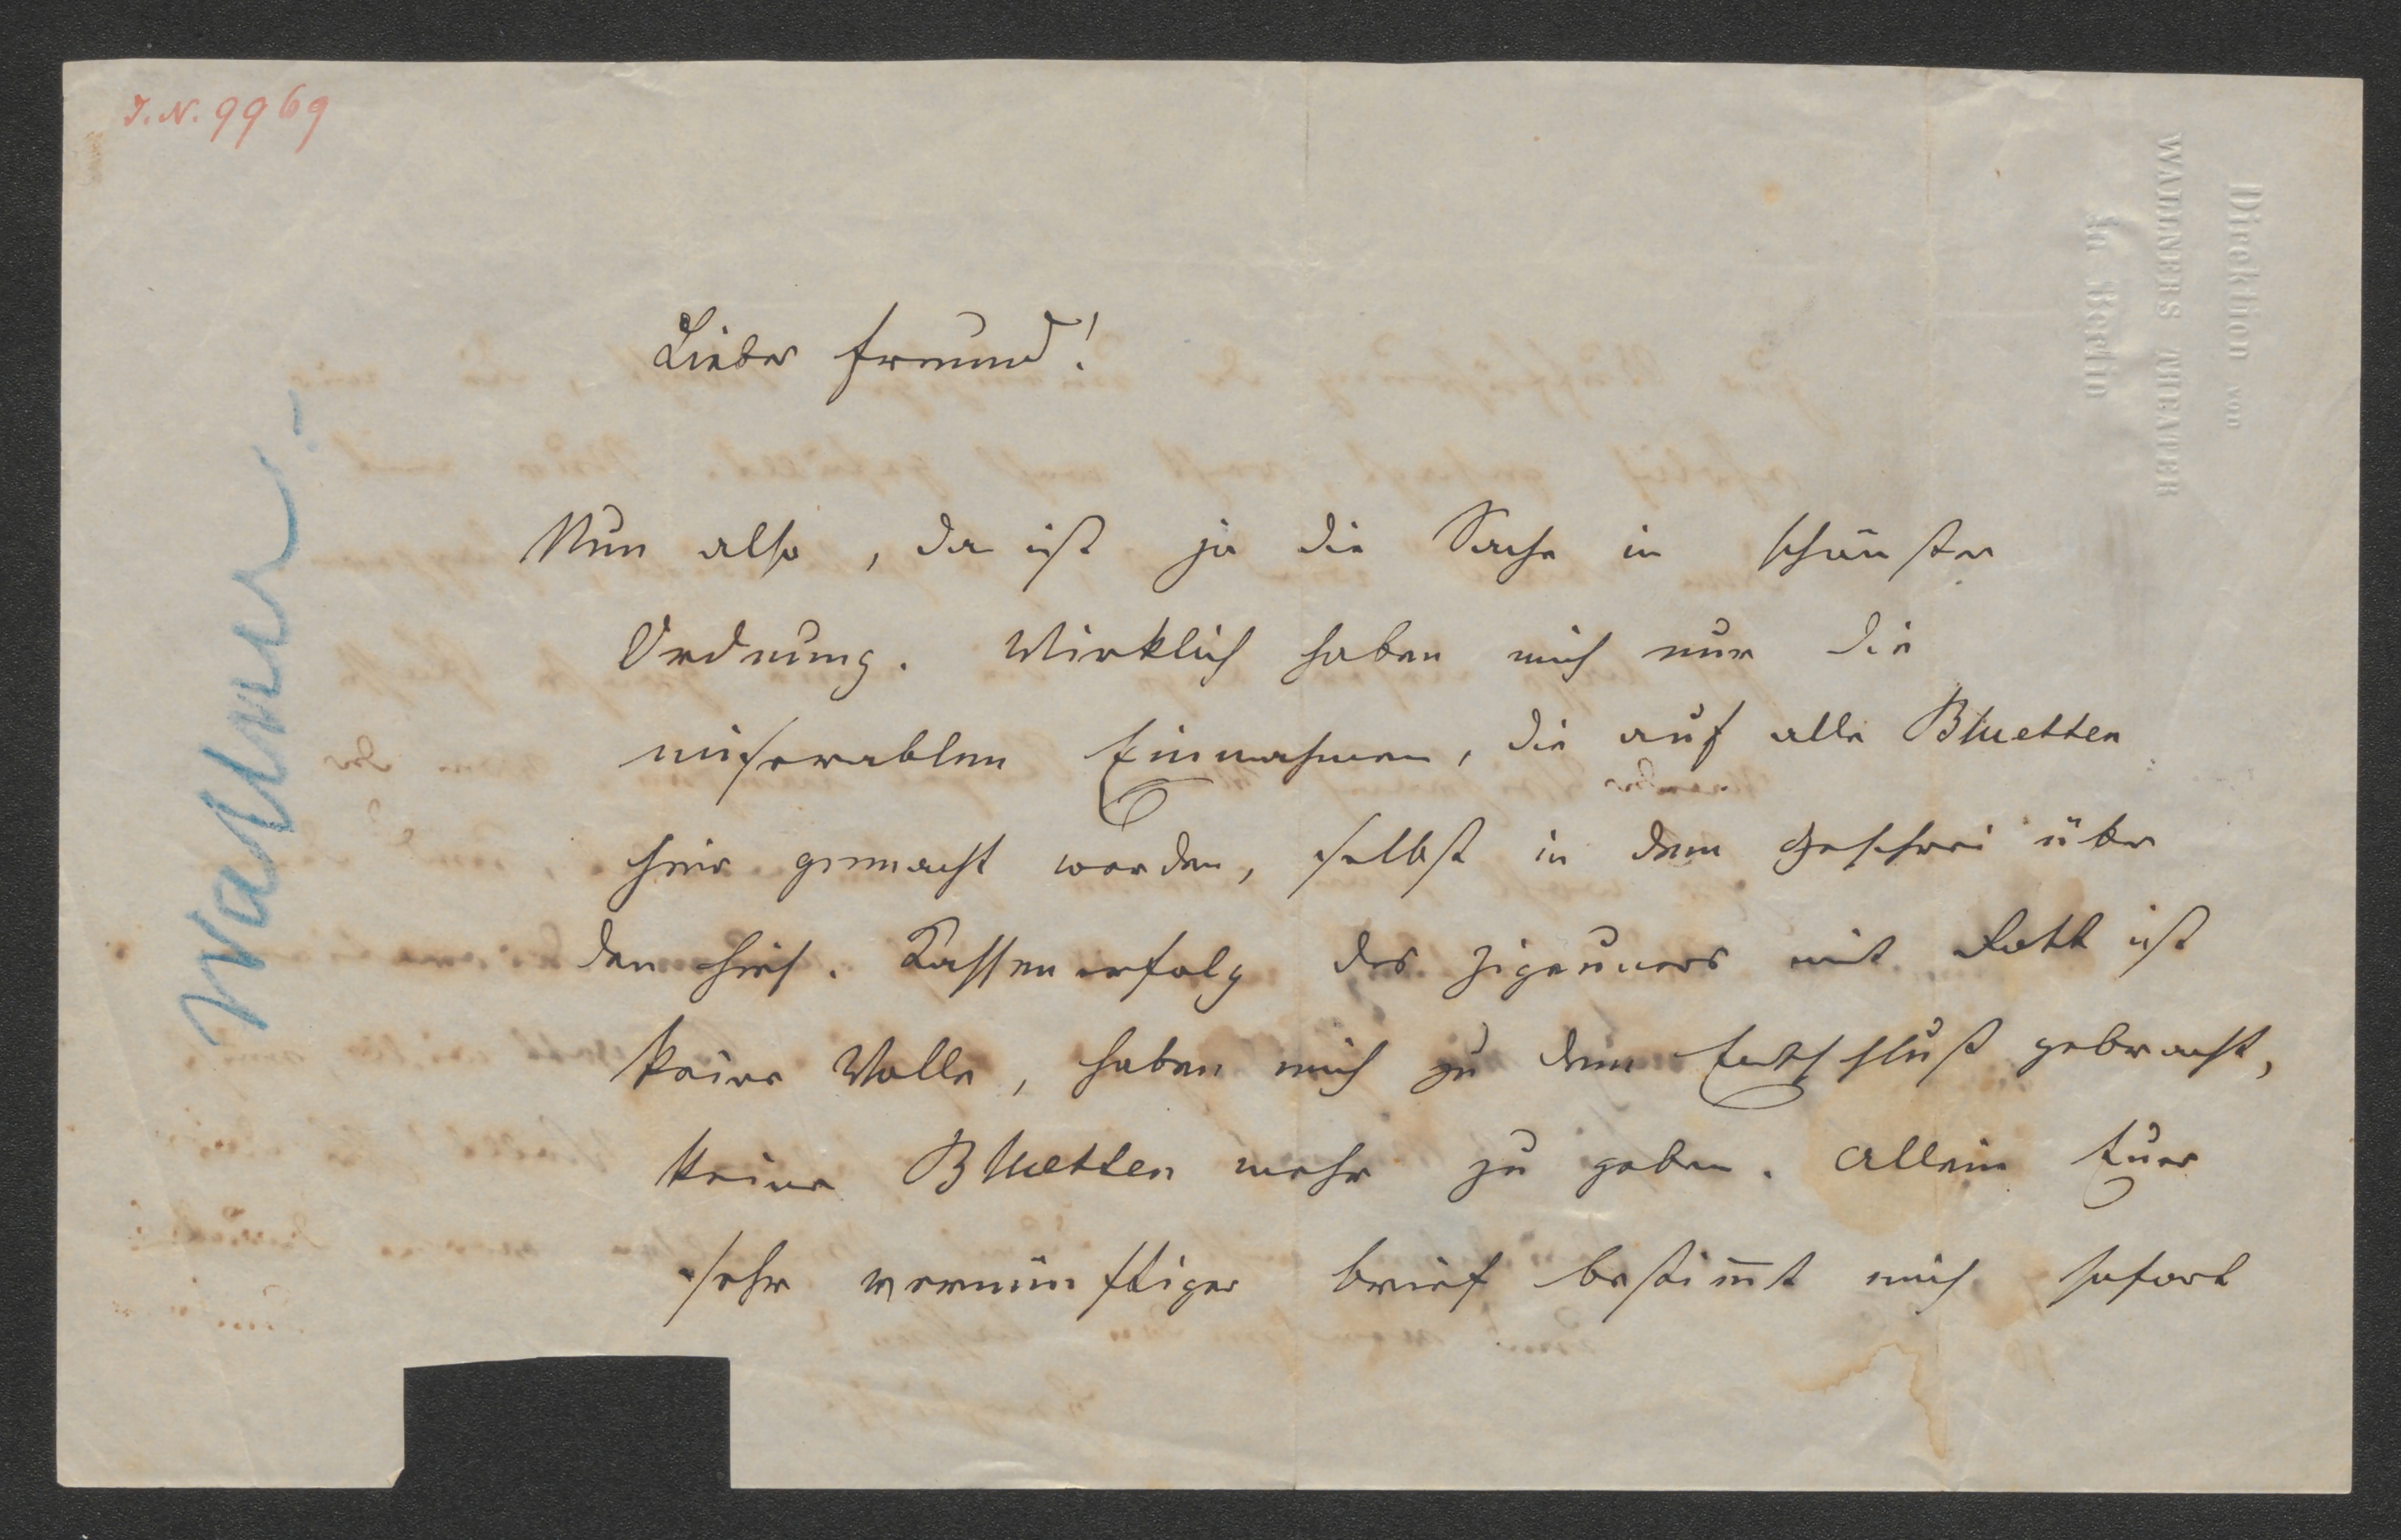 I. N. 9969
Direktion von
WALLNERS THEATER
in Berlin
Wallner
Lieber Freund!
Nun also, da ist ja die Sache in schönster
Ordnung. Wirklich haben mich nur die
miserablen Einnahmen, die auf alle Bluetten
hier gemacht worden, selbst in dem Geschrei über
den hies. Kassenerfolg des Zigeuners mit Lott ist
keine Wolle, haben mich zu dem Entschluß gebracht,
keine Bluetten mehr zu geben. Allein Euer
sehr vernünftiger Brief bestim̅t mich sofort